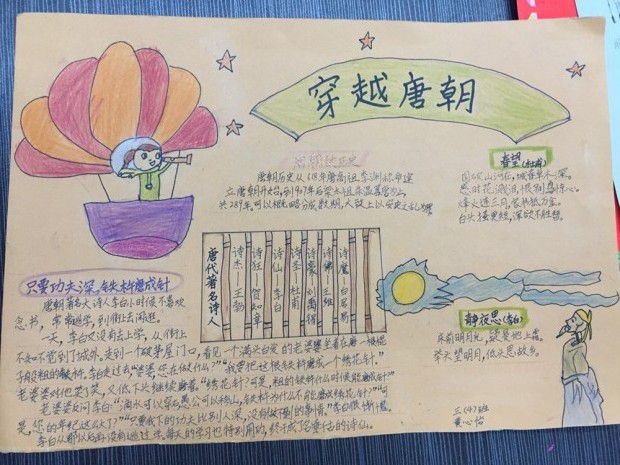 穿越唐朝
唐朝的历史
唐朝历史从618年唐高祖李渊称帝建
立唐朝开始,到907年后梁太祖朱温篡唐为止,
共289年。可以粗略分成数期,大致上以安史之乱为界
春望(杜甫)
国破山河在,城春草木深。
感时花溅泪,恨别鸟惊心。
烽火连三月,家书抵万金。
白头搔更短,浑欲不胜簪。
唐代著名诗人
诗杰 王勃
诗狂 贺知章
诗仙 李白
诗圣 杜甫
诗豪 刘禹锡
诗佛 王维
诗魔 白居易
静夜思(李白)
床前明月光,疑是地上霜。
举头望明月,低头思故乡。
只要功夫深,铁杵磨成针
唐朝著名大诗人李白小时候不喜欢
念书,常常逃学,到街上去闲逛。
一天,李白又没有去上学,从街上
不知不觉到了城外。走到一个破茅屋门口,看见一个满头白发的老婆婆坐着在磨一根棍
子般粗的铁杵。李白走过去"婆婆,您在做什么?""我要把这根铁杵磨成一个绣花针"。
老婆婆对他笑了笑,又低下头继续磨着。"绣花针?可是,粗的铁杵什么时候能磨成针?"
老婆婆反问李白:"滴水可以穿石愚公可以移山,铁杵为什么不能磨成绣花针?""可
是,您的年纪这么大了?""只要我下的功夫比别人深,没有做不到的事情。"李白很惭愧。
李白从那以后再没有逃过学。每天的学习也特别用功,终于成了名垂千古的诗仙。
三(4)班
黄心怡